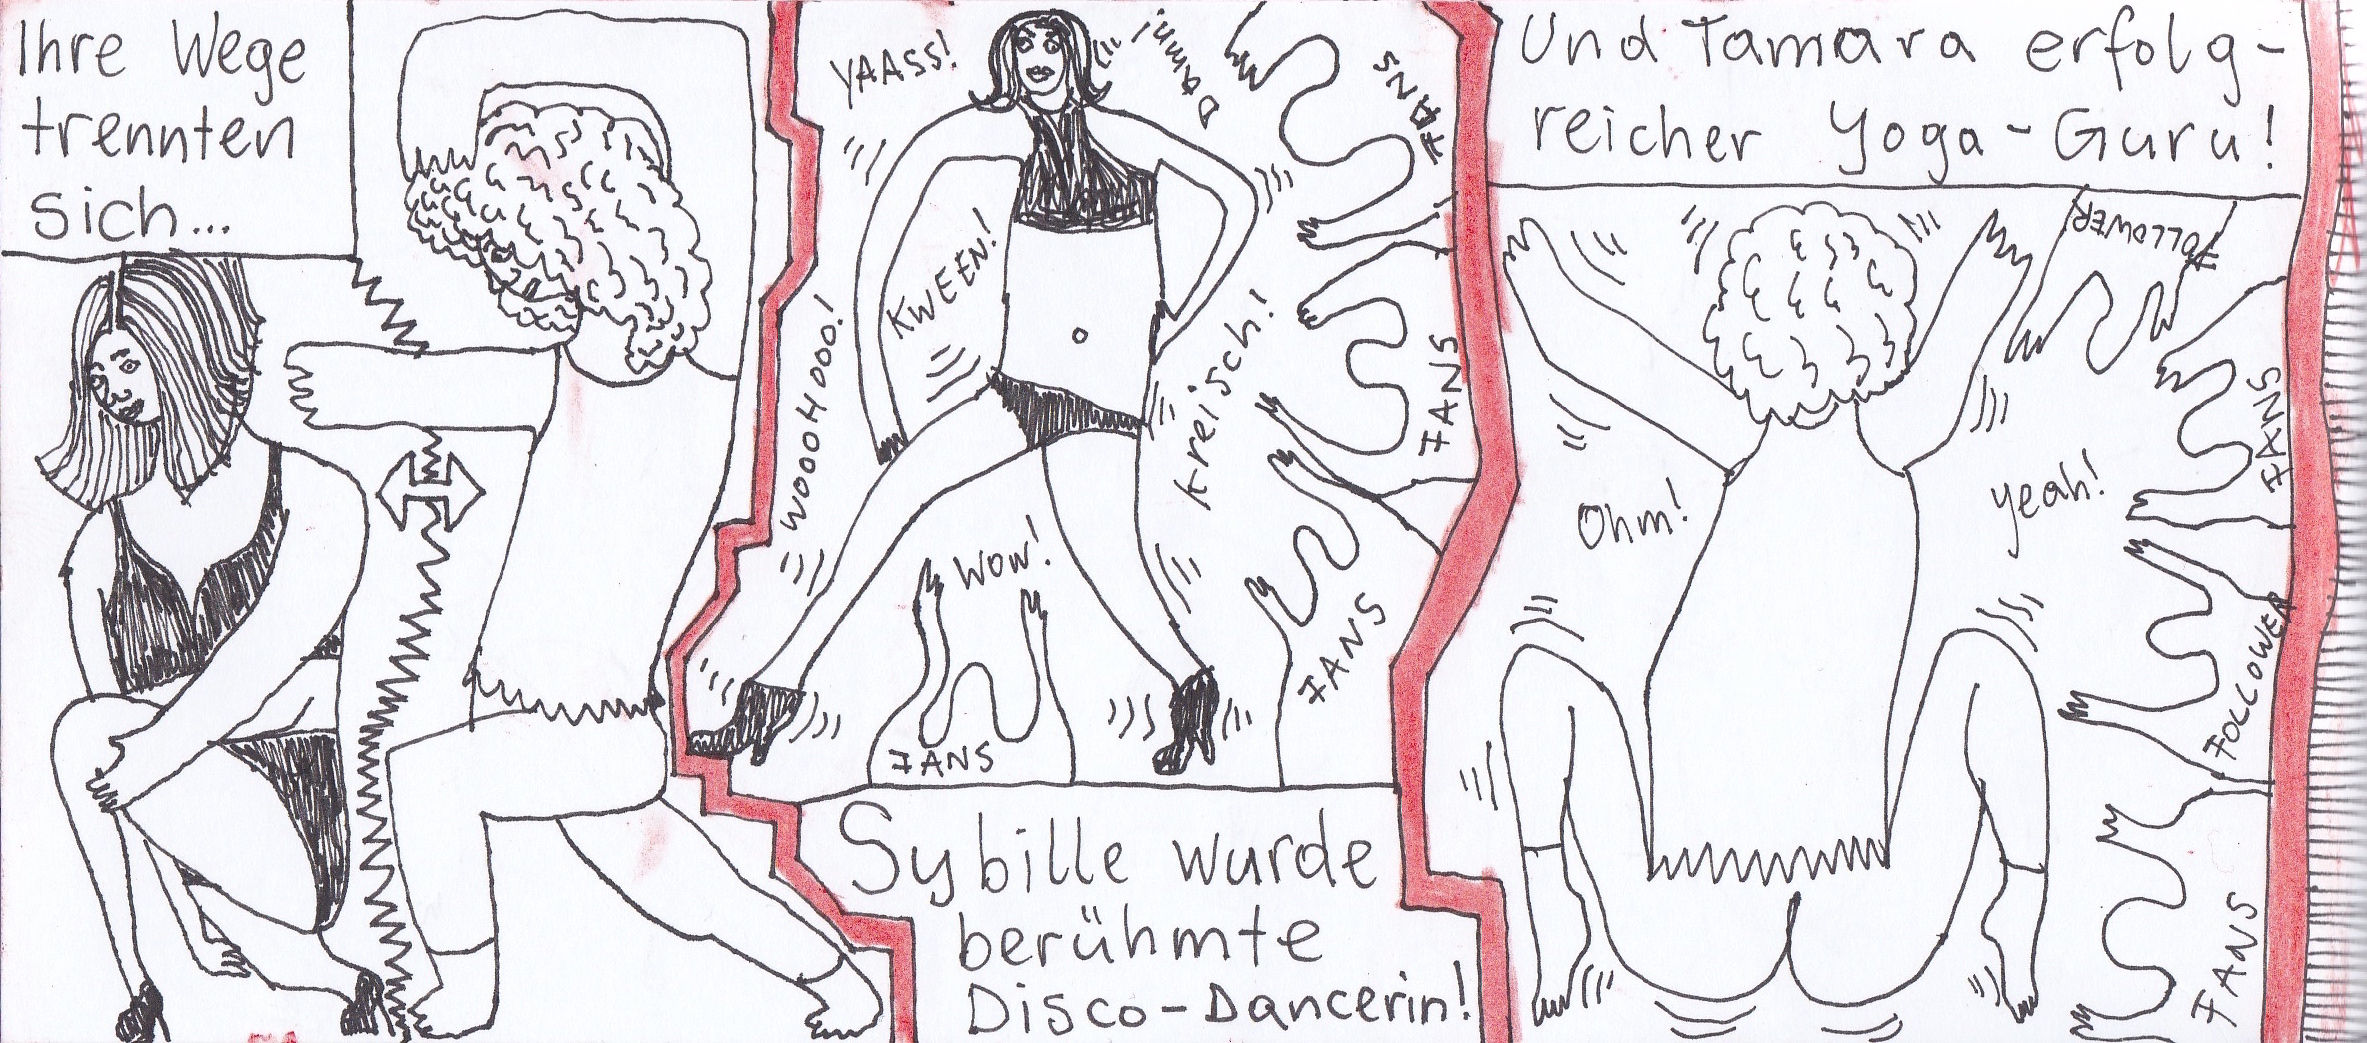 Ihre Wege
trennten
sich...
YAASS!
Damn!
FANS
KWEEN!
WOOOHOOO!
kreisch!
FANS
WOW!
FANS
FANS
Sybille wurde
berühmte
Disco-Dancerin!
Und Tamara erfolg-
reicher Yoga-Guru!
FOLLOWER
FANS
Ohm!
yeah!
FOLLOWER
FANS